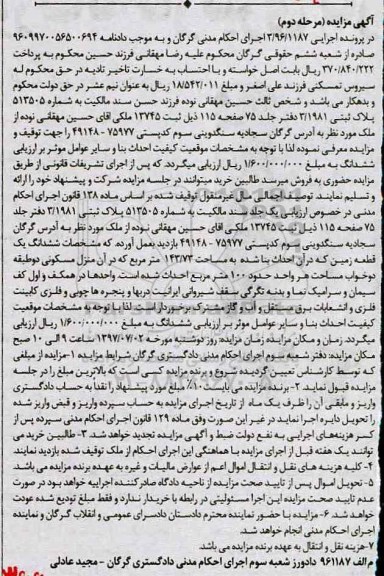 آگهی مزایده (مرحله دوم)
در پرونده اجرایی ۳/۹۶/۱۱۸۷ اجرای احکام مدنی گرگان و به موجب دادنامه ۹۶۰۹۹۷۰۰۵۶۵۰۰۶۹۴
صادره از شعبه ششم حقوقی گرگان محکوم علیه رضا مهقانی فرزند حسین محکوم به پرداخت
۳۷۰/۸۴۰/۲۲۲ ریال بابت اصل خواسته و با احتساب به خسارت تاخیر تادیه در حق محکوم له
سیروس تمسکنی فرزند علی اصغر و مبلغ ۱۸/۵۴۲/۰۱۱ ریال به عنوان نیم عشر در حق دولت محکوم
و بدهکار می باشد و شخص ثالث حسین مهقانی نوده فرزند حسن سند مالکیت به شماره ۵۱۳۵۰۵
پلاک ثبتی ۳/۱۹۸۱ دفتر جلد ۷۵ صفحه ۱۱۵ ذیل ثبت ۱۳۷۴۵ ملکی اقای حسین مهقانی نوده از
ملک مورد نظر به آدرس گرگان سجادیه سنگدوینی سوم کدپستی ۷۵۹۷۷ - ۴۹۱۴۸ را جهت توقیف و
مزایده معرفی نموده لذا با توجه به مشخصات موقعیت کیفیت احداث بنا و سایر عوامل موثر بر ارزیابی
ششدانگ به مبلغ ۱/۶۰۰/۰۰۰/۰۰۰ ریال ارزیابی میگردد. که پس از اجرای تشریفات قانونی از طریق
مزایده حضوری به فروش میرسد طالبین خرید میتوانند در جلسه مزایده شرکت و پیشنهاد خود را ارائه
و تسلیم نمایند. توصیف اجمالی مال غیرمنقول توقیف شده بر اساس ماده ۱۳۸ قانون اجرای احکام
مدنی در خصوص ارزیابی یک جلد سند مالکیت به شماره ۵۱۳۵۰۵ پلاک ثبتی ۳/۱۹۸۱ دفتر جلد
۷۵ صفحه ۱۱۵ ذیل ثبت ۱۳۷۴۵ ملکی اقای حسین مهقانی نوده از ملک مورد نظر به آدرس گرگان
سجادیه سنگدوینی سوم کدپستی ۷۵۹۷۷ - ۴۹۱۴۸ بازدید بعمل آورده. که مشخصات ششدانگ یک
قطعه زمین که در آن احداث بنا شده به مساحت ۱۴۳/۷۳ متر مربع که در آن منزل مسکونی دوطبقه
دوخواب مساحت هر واحد حدود ۱۰۰ متر مربع احداث شده است. واحدها در همکف و اول کف
سیمان و سرامیک نما و بدنه تگرگی سقف شیروانی ایرانیت دربها و پنجره ها چوبی و فلزی کابینت
فلزی و انشعابات برق مستقل و آب و گاز مشترک برخوردار است. لذا با توجه به مشخصات موقعیت
کیفیت احداث بنا و سایر عوامل موثر بر ارزیابی ششدانگ به مبلغ ۱/۶۰۰/۰۰۰/۰۰۰ ریال ارزیابی
میگردد. زمان و مکان مزایده: زمان مزایده: روز دوشنبه مورخه ۱۳۹۷/۰۷/۰۲ ساعت ۹ الی ۱۰ صبح
مکان مزایده: دفتر شعبه سوم اجرای احکام مدنی دادگستری گرگان شرایط مزایده ۱- مزایده از مبلغی
که توسط کارشناس تعیین گردیده شروع و برنده مزایده کسی است که بالاترین مبلغ را در جلسه
مزایده قبول نماید. ۲- برنده مزایده می بایست ۱۰٪ مبلغ مورد پیشنهاد را نقدا به حساب دادگستری
واریز و مابقی آن را ظرف یک ماه از تاریخ اجرای مزایده به حساب سپرده واریز و قبض واریز شده
را تحویل دایره اجرا نماید در غیر این صورت وفق ماده ۱۲۹ قانون اجرای احکام مدنی سپرده پس از
کسر هزینه‌های اجرایی به نفع دولت ضبط و آگهی مزایده تجدید خواهد شد. ۳- طالبین خرید می
توانند یک هفته قبل از اجرای مزایده با هماهنگی این اجرای احکام از ملک توقیف شده بازدید نمایند
۴- کلیه هزینه های نقل و انتقال اموال اعم از عوارض مالیات و غیره به عهده برنده مزایده می باشد
۵- تحویل اموال پس از تایید صحت مزایده از ناحیه دادگاه صادرکننده اجراییه خواهد بود در صورت
عدم تایید صحت مزایده این اجرا مسئولیتی در رابطه با خریدار ندارد و فقط مبلغ تودیع شده عودت
خواهد شد. ۶- مزایده با حضور نماینده محترم دادستان دادسرای عمومی و انقلاب گرگان و نماینده
اجرای احکام مدنی انجام خواهد شد.
۷- هزینه نقل و انتقال به عهده برنده مزایده می باشد.
م الف ۹۶۱۱۸۷ دادورز شعبه سوم اجرای احکام مدنی دادگستری گرگان - مجید عادلی